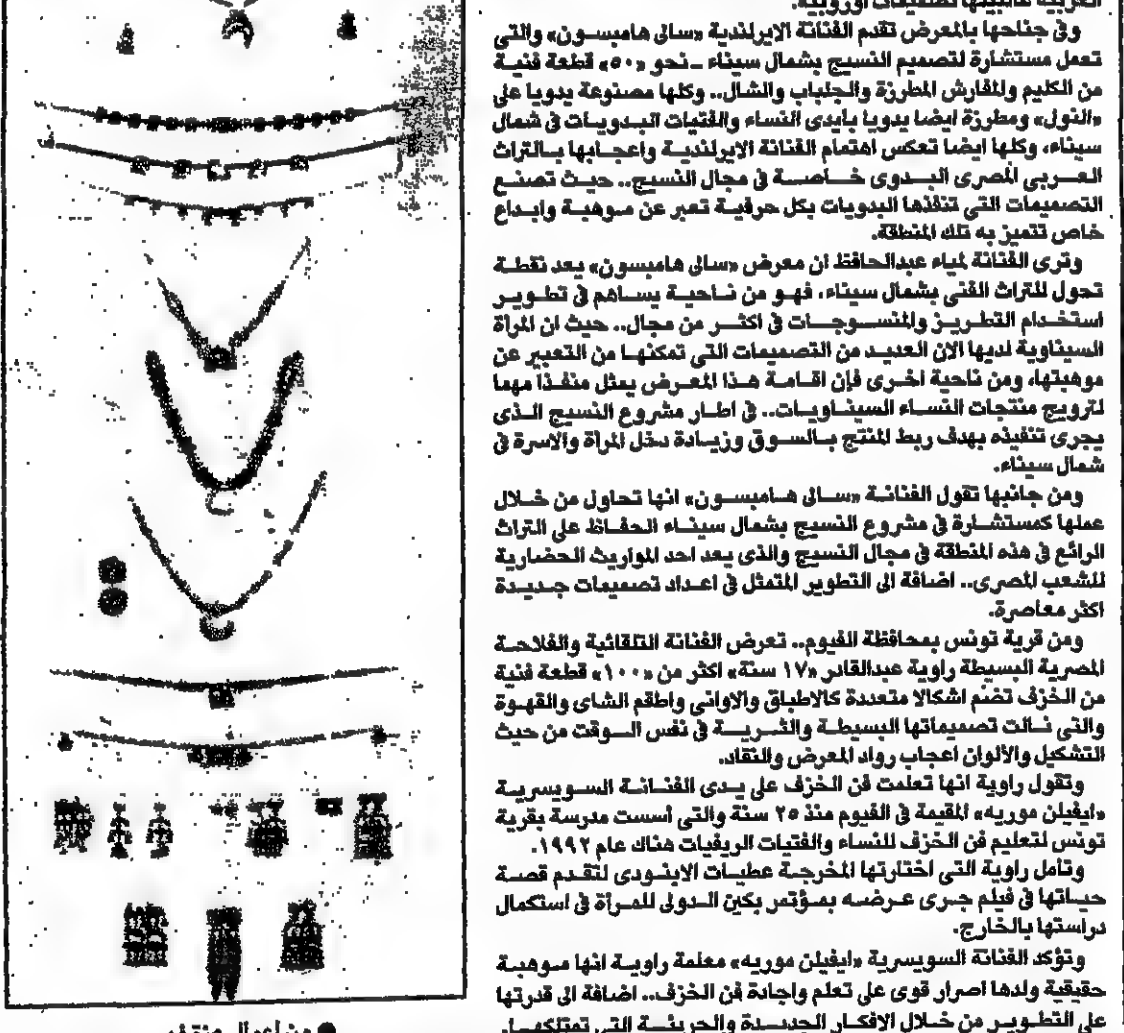 العربية غالبيتها تصميمات أوروبية.
وفى جناحها بالمعرض تقدم الفنانة الايرلندية «سالى هامبسون» والتى
تعمل مستشارة لتصميم النسيج بشمال سيناء ـ نحو «٥٠» قطعة فنية
من الكليم والمفارش المطرزة والجلباب والشال.. وكلها مصنوعة يدويا على
«النول» ومطرزة ايضا يدويا بايدى النساء والفتيات البدويات فى شمال
سيناء، وكلها ايضا تعكس اهتمام الفنانة الايرلندية واعجابها بالتراث
العربى المصرى البدوى خاصة فى مجال النسيج.. حيث تصنع
التصميمات التى تنفذها البدويات بكل حرفية تعبر عن موهبة وابداع
خاص تتميز به تلك المنطقة.
وترى الفنانة لمياء عبدالحافظ ان معرض «سالى هامبسون» يعد نقطة
تحول للتراث الفنى بشمال سيناء، فهو من ناحية يساهم فى تطوير
استخدام التطريز والمنسوجات فى اكثر من مجال.. حيث ان المراة
السيناوية لديها الان العديد من التصميمات التى تمكنها من التعبير عن
موهبتها، ومن ناحية اخرى فإن اقامة هذا المعرض يمثل منفذا مهما
لترويج منتجات النساء السيناويات.. فى اطار مشروع النسيج الذى
يجرى تنفيذه بهدف ربط المنتج بالسوق وزيادة دخل المرأة والاسرة فى
شمال سيناء.
ومن جانبها تقول الفنانة «سالى هامبسون» انها تحاول من خلال
عملها كمستشارة فى مشروع النسيج بشمال سيناء الحفاظ على التراث
الرائع فى هذه المنطقة فى مجال النسيج والذى يعد احد المواريث الحضارية
للشعب المصرى.. اضافة الى التطوير المتمثل فى اعداد تصميمات جديدة
اكثر معاصرة.
ومن قرية تونس بمحافظة الفيوم.. تعرض الفنانة التلقائية والفلاحة
المصرية البسيطة راوية عبدالقادر «١٧ سنة» اكثر من «١٠٠» قطعة فنية
من الخزف تضم اشكالا متعددة كالاطباق والاوانى واطقم الشاى والقهوة
والتى نالت تصميماتها البسيطة والثرية فى نفس الوقت من حيث
التشكيل والألوان اعجاب رواد المعرض والنقاد.
وتقول راوية انها تعلمت فن الخزف على يدى الفنانة السويسرية
«ايفيلن موريه» المقيمة فى الفيوم منذ ٢٥ سنة والتى أسست مدرسة بقرية
تونس لتعليم فن الخزف للنساء والفتيات الريفيات هناك عام ١٩٩٢.
وتأمل راوية التى اختارتها المخرجة عطيات الابنودى لتقدم قصة
حياتها فى فيلم جرى عرضه بمؤتمر بكين الدولى للمرأة فى استكمال
دراستها بالخارج.
وتؤكد الفنانة السويسرية «ايفيلن موريه» معلمة راوية انها موهبة
حقيقية ولدها اصرار قوى على تعلم واجادة فن الخزف.. اضافة الى قدرتها
على التطوير من خلال الافكار الجديدة والجريئة التى تمتلكها.
● من اعمال